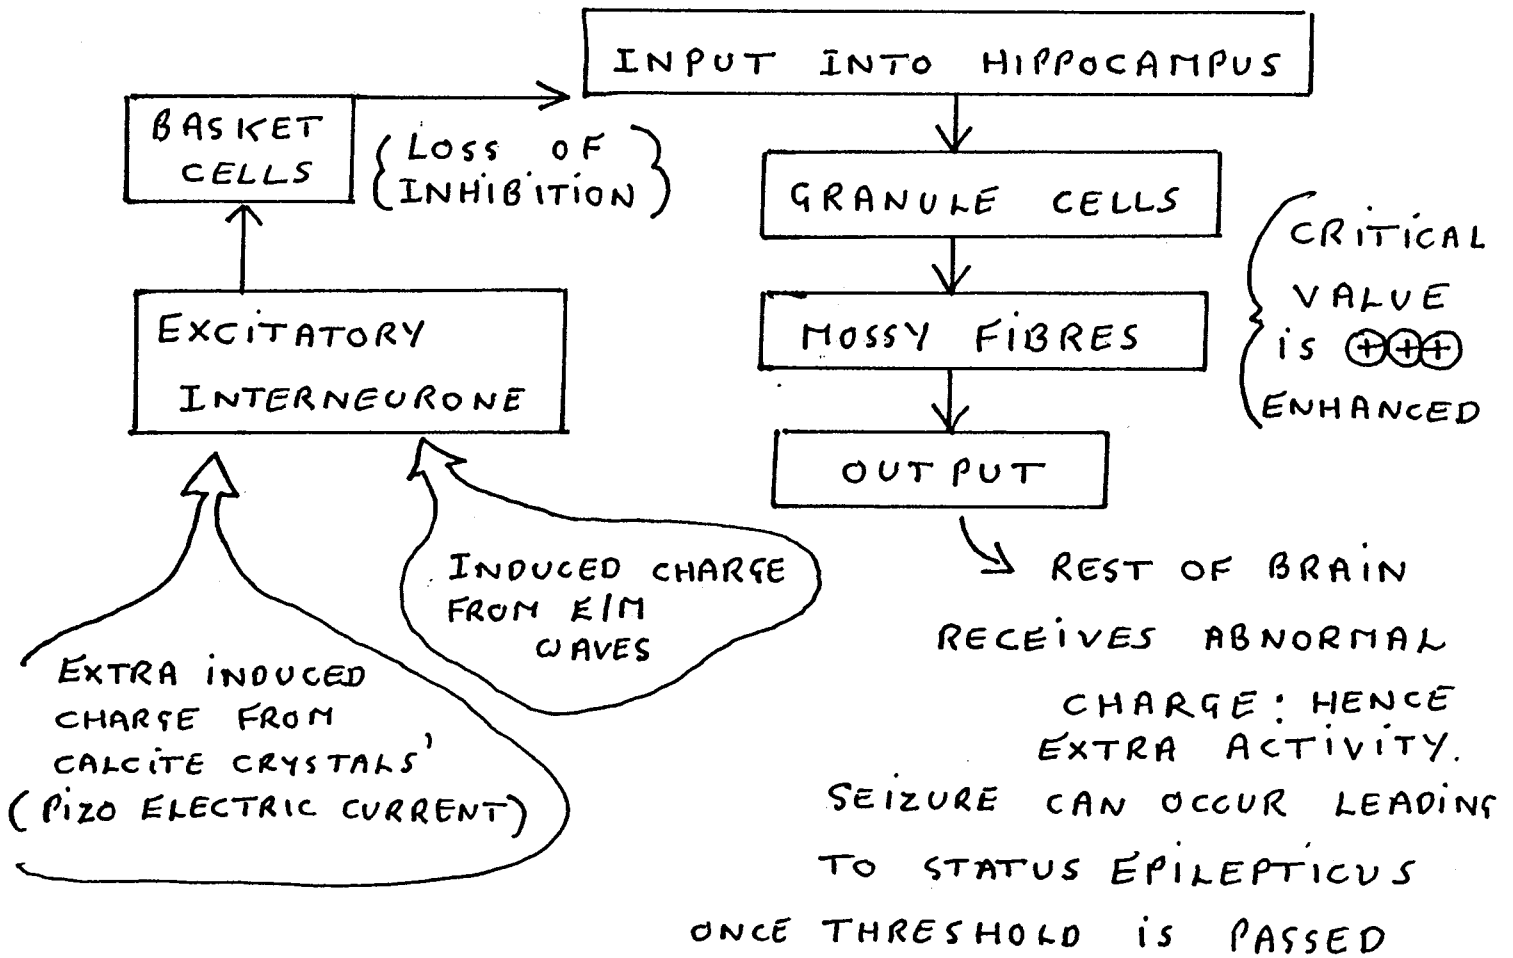 INPUT INTO HIPPOCAMPUS
BASKET
CELLS
(LOSS OF
INHIBITION)
GRANULE CELLS
CRITICAL
VALUE
iS ⊕⊕⊕
ENHANCED
MOSSY FIBRES
EXCITATORY
INTERNEURONE
OUTPUT
INDUCED CHARGE
FROM E/M
WAVES
EXTRA INDUCED
CHARGE FROM
CALCITE CRYSTALS'
(PIZO ELECTRIC CURRENT)
REST OF BRAIN
RECEIVES ABNORMAL
CHARGE: HENCE
EXTRA ACTIVITY.
SEIZURE CAN OCCUR LEADING
TO STATUS EPILEPTICUS
ONCE THRESHOLD IS PASSED